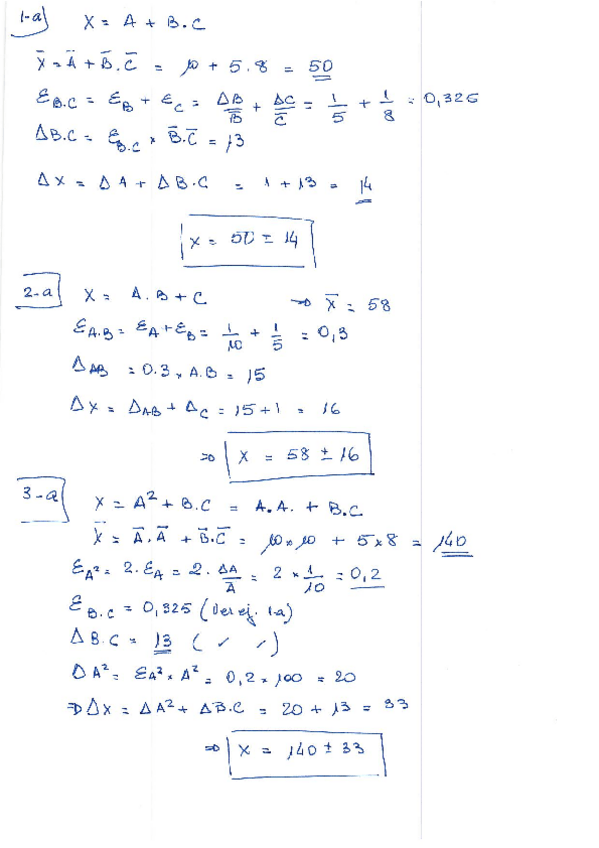 1-a) X = A + B.C
X̄ = Ā + B̄.C̄ = 10 + 5.8 = 50
ε_B.C = ε_B + ε_C = ΔB/B̄ + ΔC/C̄ = 1/5 + 1/8 = 0,325
ΔB.C = ε_B.C × B̄.C̄ = 13
ΔX = ΔA + ΔB.C = 1 + 13 = 14
X = 50 ± 14
2-a) X = A.B + C ⇒ X̄ = 58
ε_A.B = ε_A + ε_B = 1/10 + 1/5 = 0,3
Δ_AB = 0.3 × A.B = 15
ΔX = Δ_AB + Δ_C = 15 + 1 = 16
⇒ X = 58 ± 16
3-a) X = A² + B.C = A.A. + B.C
X̄ = Ā.Ā + B̄.C̄ = 10×10 + 5×8 = 140
ε_A² = 2.ε_A = 2.ΔA/Ā = 2 × 1/10 = 0,2
ε_B.C = 0,325 (Ver ej. 1.a)
ΔB.C = 13 ( ✓ ✓ )
ΔA² = ε_A² × A² = 0,2 × 100 = 20
⇒ ΔX = ΔA² + ΔB.C = 20 + 13 = 33
⇒ X = 140 ± 33